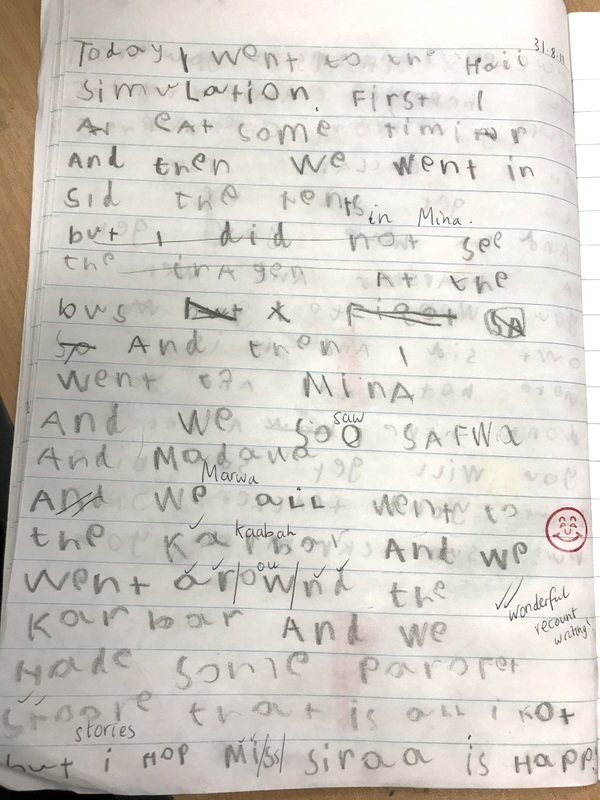 31.8.11
Today I went to the Hajj
simuLation. First I
eAt some
And then we went in
Sid the tents
in Mina.
but I did not see
the At the
bus
And then I
went MinA
And we soo SAFWA
saw
And
Marwa
And we aLL went to
the Karbar And we
Kaabah
went arownd the
ou
Karbar And we
wonderful
recount
writing!
Made some
Stoore that is aLL i kot
stories
but i HOP Miss siraa is HAPP